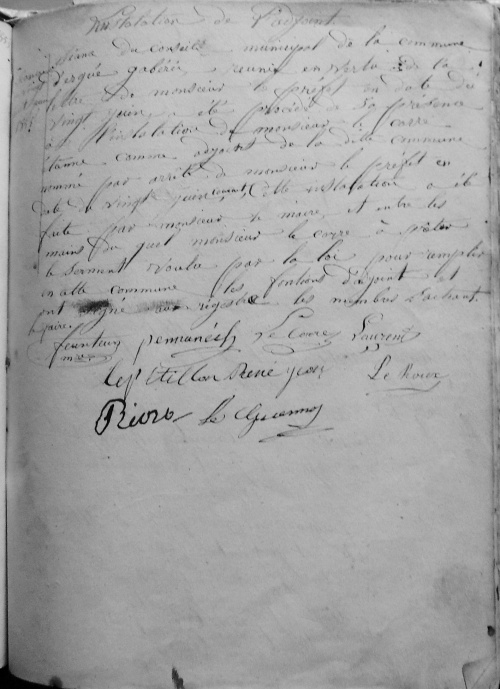 Installation de l'adjoint
Séance du conseils municipal de la commune
d'ergué gabéric, reunie en vertu de la
lettre de monsieur le préfet en date du
vingt juin, a été procédé en sa présence
à l'instalation de monsieur le Carre
étienne comme adjoint de la dite commune
nommé par arrité de monsieur le préfet en
date du vingt juin courant, Cette instalation a été
faite par monsieur le maire, et entre les
mains du quel monsieur le corre à prêter
le serment voulue par la loi pour remplir
en cette commune les fontions d'adjoint et
ont signé au régistre les membres Sachant
le faire.
feunteun pennanéch Le Corre Laurent
mre
René Le Roux
Riou Le Guennou